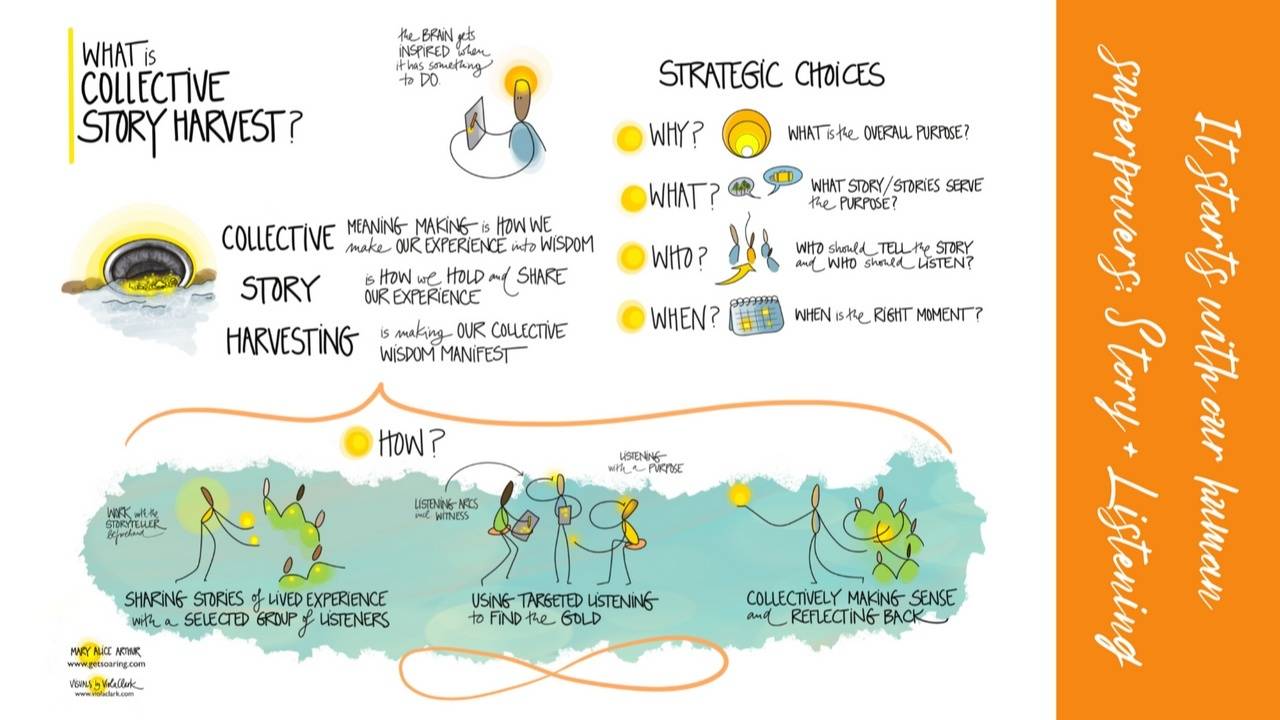 WHAT is
COLLECTIVE
STORY HARVEST?
the BRAIN gets
INSPIRED when
it has something
to DO.
COLLECTIVE
MEANING MAKING is HOW WE
make OUR EXPERIENCE into WISDOM
STORY
is HOW we HOLD and SHARE
OUR EXPERIENCE
HARVESTING
is making OUR COLLECTIVE
WISDOM MANIFEST
STRATEGIC CHOICES
WHY?
WHAT is the OVERALL PURPOSE?
WHAT?
WHAT STORY/STORIES SERVE
the PURPOSE?
WHO?
WHO should TELL the STORY
and WHO should LISTEN?
WHEN?
WHEN is the RIGHT MOMENT?
HOW?
WORK with the
STORYTELLER
beforehand
SHARING STORIES of LIVED EXPERIENCE
with a SELECTED GROUP of LISTENERS
LISTENING ARCS
incl. WITNESS
LISTENING
with a PURPOSE
USING TARGETED LISTENING
to FIND the GOLD
COLLECTIVELY MAKING SENSE
and REFLECTING BACK
MARY ALICE ARTHUR
www.getsoaring.com
VISUALS by Viola Clark
www.violaclark.com
It starts with our human
superpowers: Story + Listening